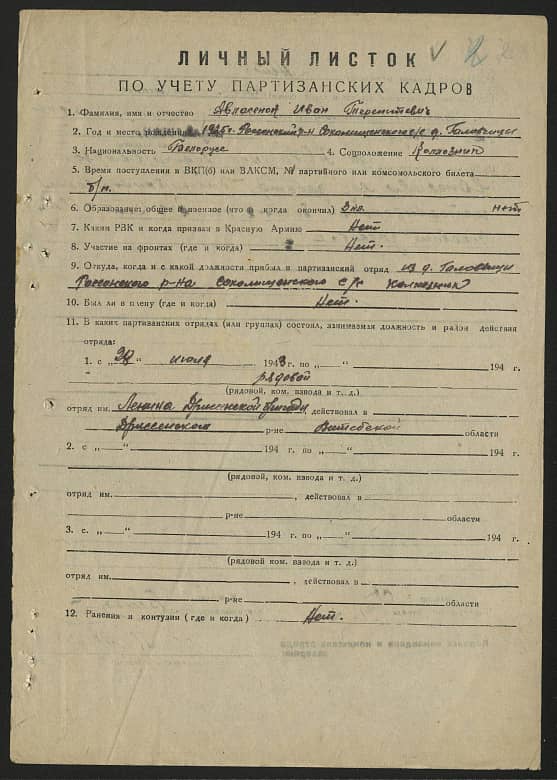 ЛИЧНЫЙ ЛИСТОК
ПО УЧЕТУ ПАРТИЗАНСКИХ КАДРОВ
1. Фамилия, имя и отчество Авласенок Иван Терентьевич
2. Год и место рождения 1925г. Россонский р-н Соколищенского с/с д. Головчицы
3. Национальность Белорусс 4. Соцположение Колхозник
5. Время поступления в ВКП(б) или ВЛКСМ, № партийного или комсомольского билета
б/п.
6. Образование: общее и военное (что и когда окончил) нет
7. Каким РВК и когда призван в Красную Армию Нет
8. Участие на фронтах (где и когда) Нет.
9. Откуда, когда и с какой должности прибыл в партизанский отряд из д. Головчицы
Россонского р-на Соколищенского с/с колхозник
10. Был ли в плену (где и когда) Нет.
11. В каких партизанских отрядах (или группах) состоял, занимаемая должность и район действия
отряда:
1. с „ “ июля 1943 г. по „ “ 194 г.
рядовой
(рядовой, ком. взвода и т. д.)
отряд им. Ленина Дриссенской бригады действовал в
Дриссенском р-не Витебской области
2. с „ “ 194 г. по „ “ 194 г.
(рядовой, ком. взвода и т. д.)
отряд им. , действовал в
р-не области
3. с. „ “ 194 г. по „ “ 194 г.
(рядовой, ком. взвода и т. д.)
отряд им. , действовал в
р-не области
12. Ранения и контузии (где и когда) Нет.